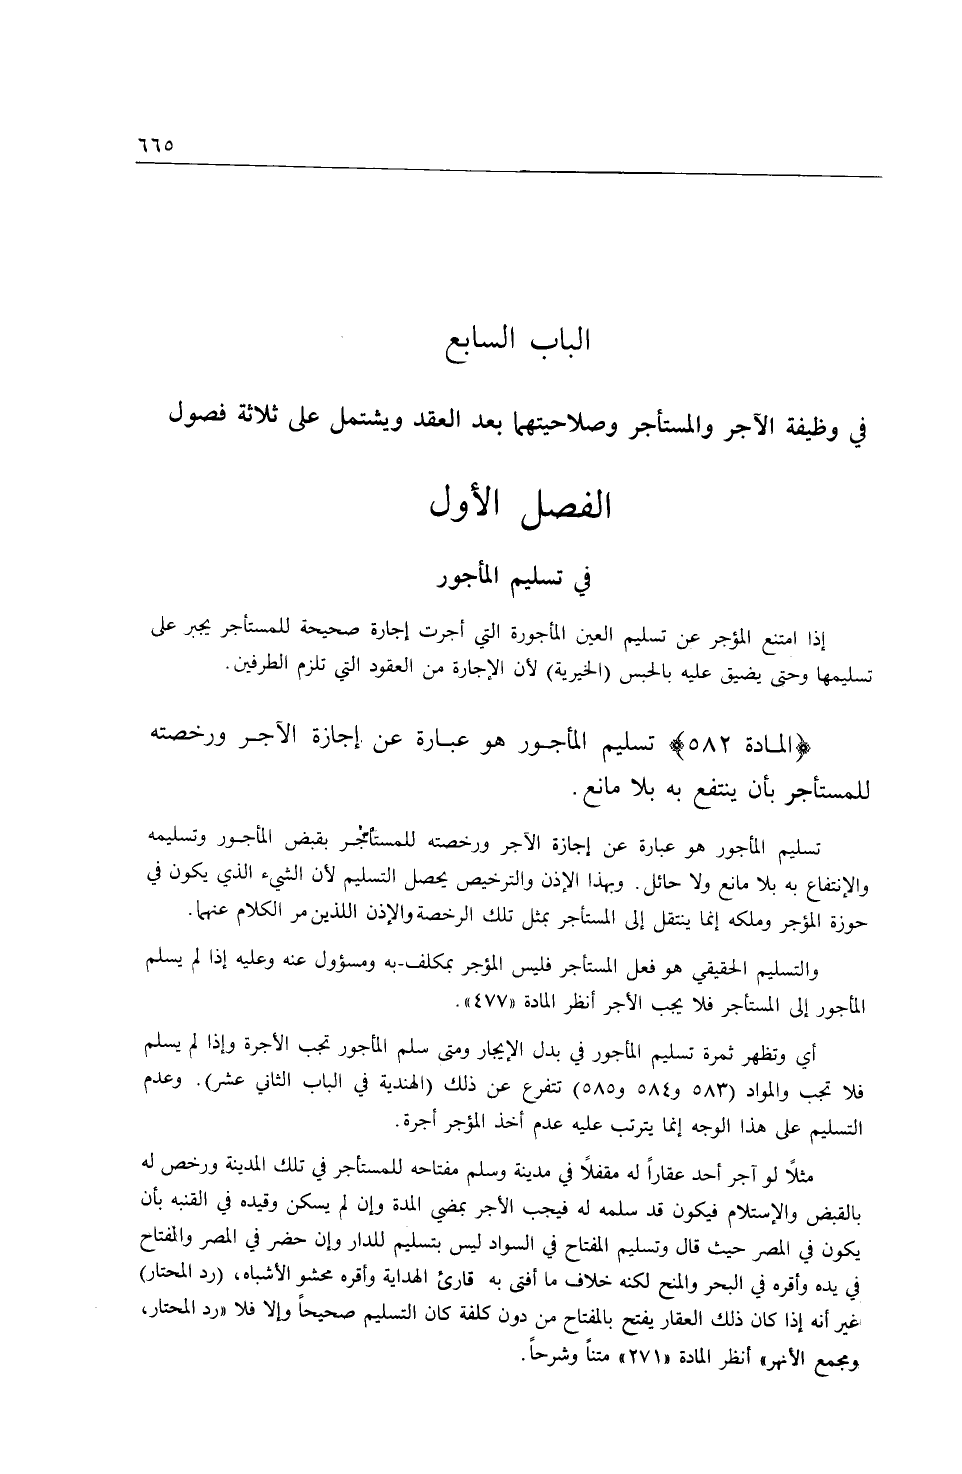 ٦٦٥
الباب السابع
في وظيفة الآجر والمستأجر وصلاحيتهما بعد العقد ويشتمل على ثلاثة فصول
الفصل الأول
في تسليم المأجور
إذا امتنع المؤجر عن تسليم العين المأجورة التي أجرت إجارة صحيحة للمستأجر يجبر على
تسليمها وحتى يضيق عليه بالحبس (الخيرية) لأن الإجارة من العقود التي تلزم الطرفين.
﴿المادة ٥٨٢﴾ تسليم المأجور هو عبارة عن إجازة الآجر ورخصته
للمستأجر بأن ينتفع به بلا مانع.
تسليم المأجور هو عبارة عن إجازة الآجر ورخصته للمستأجر بقبض المأجور وتسليمه
والإنتفاع به بلا مانع ولا حائل. وبهذا الإذن والترخيص يحصل التسليم لأن الشيء الذي يكون في
حوزة المؤجر وملكه إنما ينتقل إلى المستأجر بمثل تلك الرخصة والإذن اللذين مر الكلام عنهما.
والتسليم الحقيقي هو فعل المستأجر فليس المؤجر بمكلف-به ومسؤول عنه وعليه إذا لم يسلم
المأجور إلى المستأجر فلا يجب الأجر أنظر المادة «٤٧٧».
أي وتظهر ثمرة تسليم المأجور في بدل الإيجار ومتى سلم المأجور تجب الأجرة وإذا لم يسلم
فلا تجب والمواد (٥٨٣ و٥٨٤ و٥٨٥) تتفرع عن ذلك (الهندية في الباب الثاني عشر). وعدم
التسليم على هذا الوجه إنما يترتب عليه عدم أخذ المؤجر أجرة.
مثلاً لو آجر أحد عقاراً له مقفلاً في مدينة وسلم مفتاحه للمستأجر في تلك المدينة ورخص له
بالقبض والإستلام فيكون قد سلمه له فيجب الأجر بمضي المدة وإن لم يسكن وقيده في القنبه بأن
يكون في المصر حيث قال وتسليم المفتاح في السواد ليس بتسليم للدار وإن حضر في المصر والمفتاح
في يده وأقره في البحر والمنح لكنه خلاف ما أفتى به قارئ الهداية وأقره محشو الأشباه، (رد المحتار)
غير أنه إذا كان ذلك العقار يفتح بالمفتاح من دون كلفة كان التسليم صحيحاً وإلا فلا «رد المحتار،
ومجمع الأنهر» أنظر المادة «٢٧١» متناً وشرحاً.